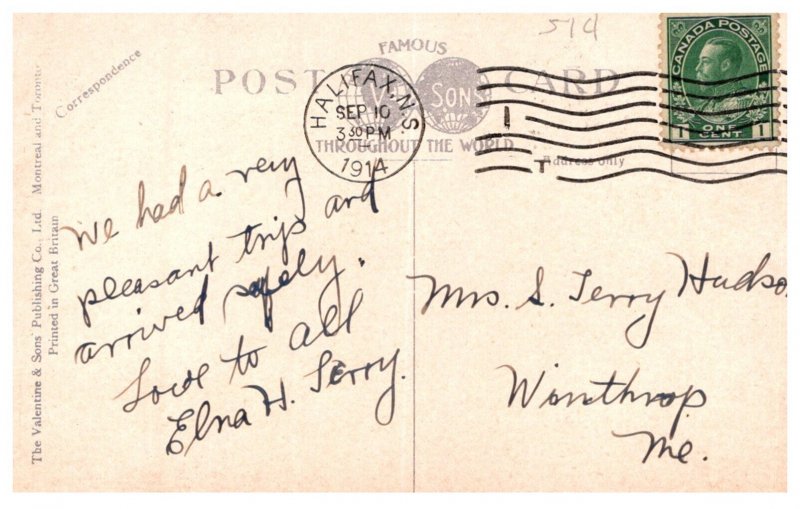 514
FAMOUS
POST CARD
V SONS
THROUGHOUT THE WORLD
HALIFAX, N.S.
SEP 10
3 30 PM
1914
CANADA POSTAGE
1 ONE CENT 1
Correspondence
Address only
The Valentine & Sons' Publishing Co., Ltd. Montreal and Toronto
Printed in Great Britain
We had a very
pleasant trip and
arrived safely.
Love to all
Elna H. Terry.
Mrs. S. Terry Hudso
Winthrop
Me.